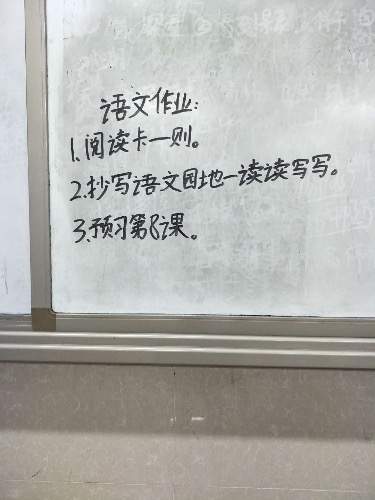 语文作业:
1.阅读卡一则。
2.抄写语文园地一读读写写。
3.预习第8课。